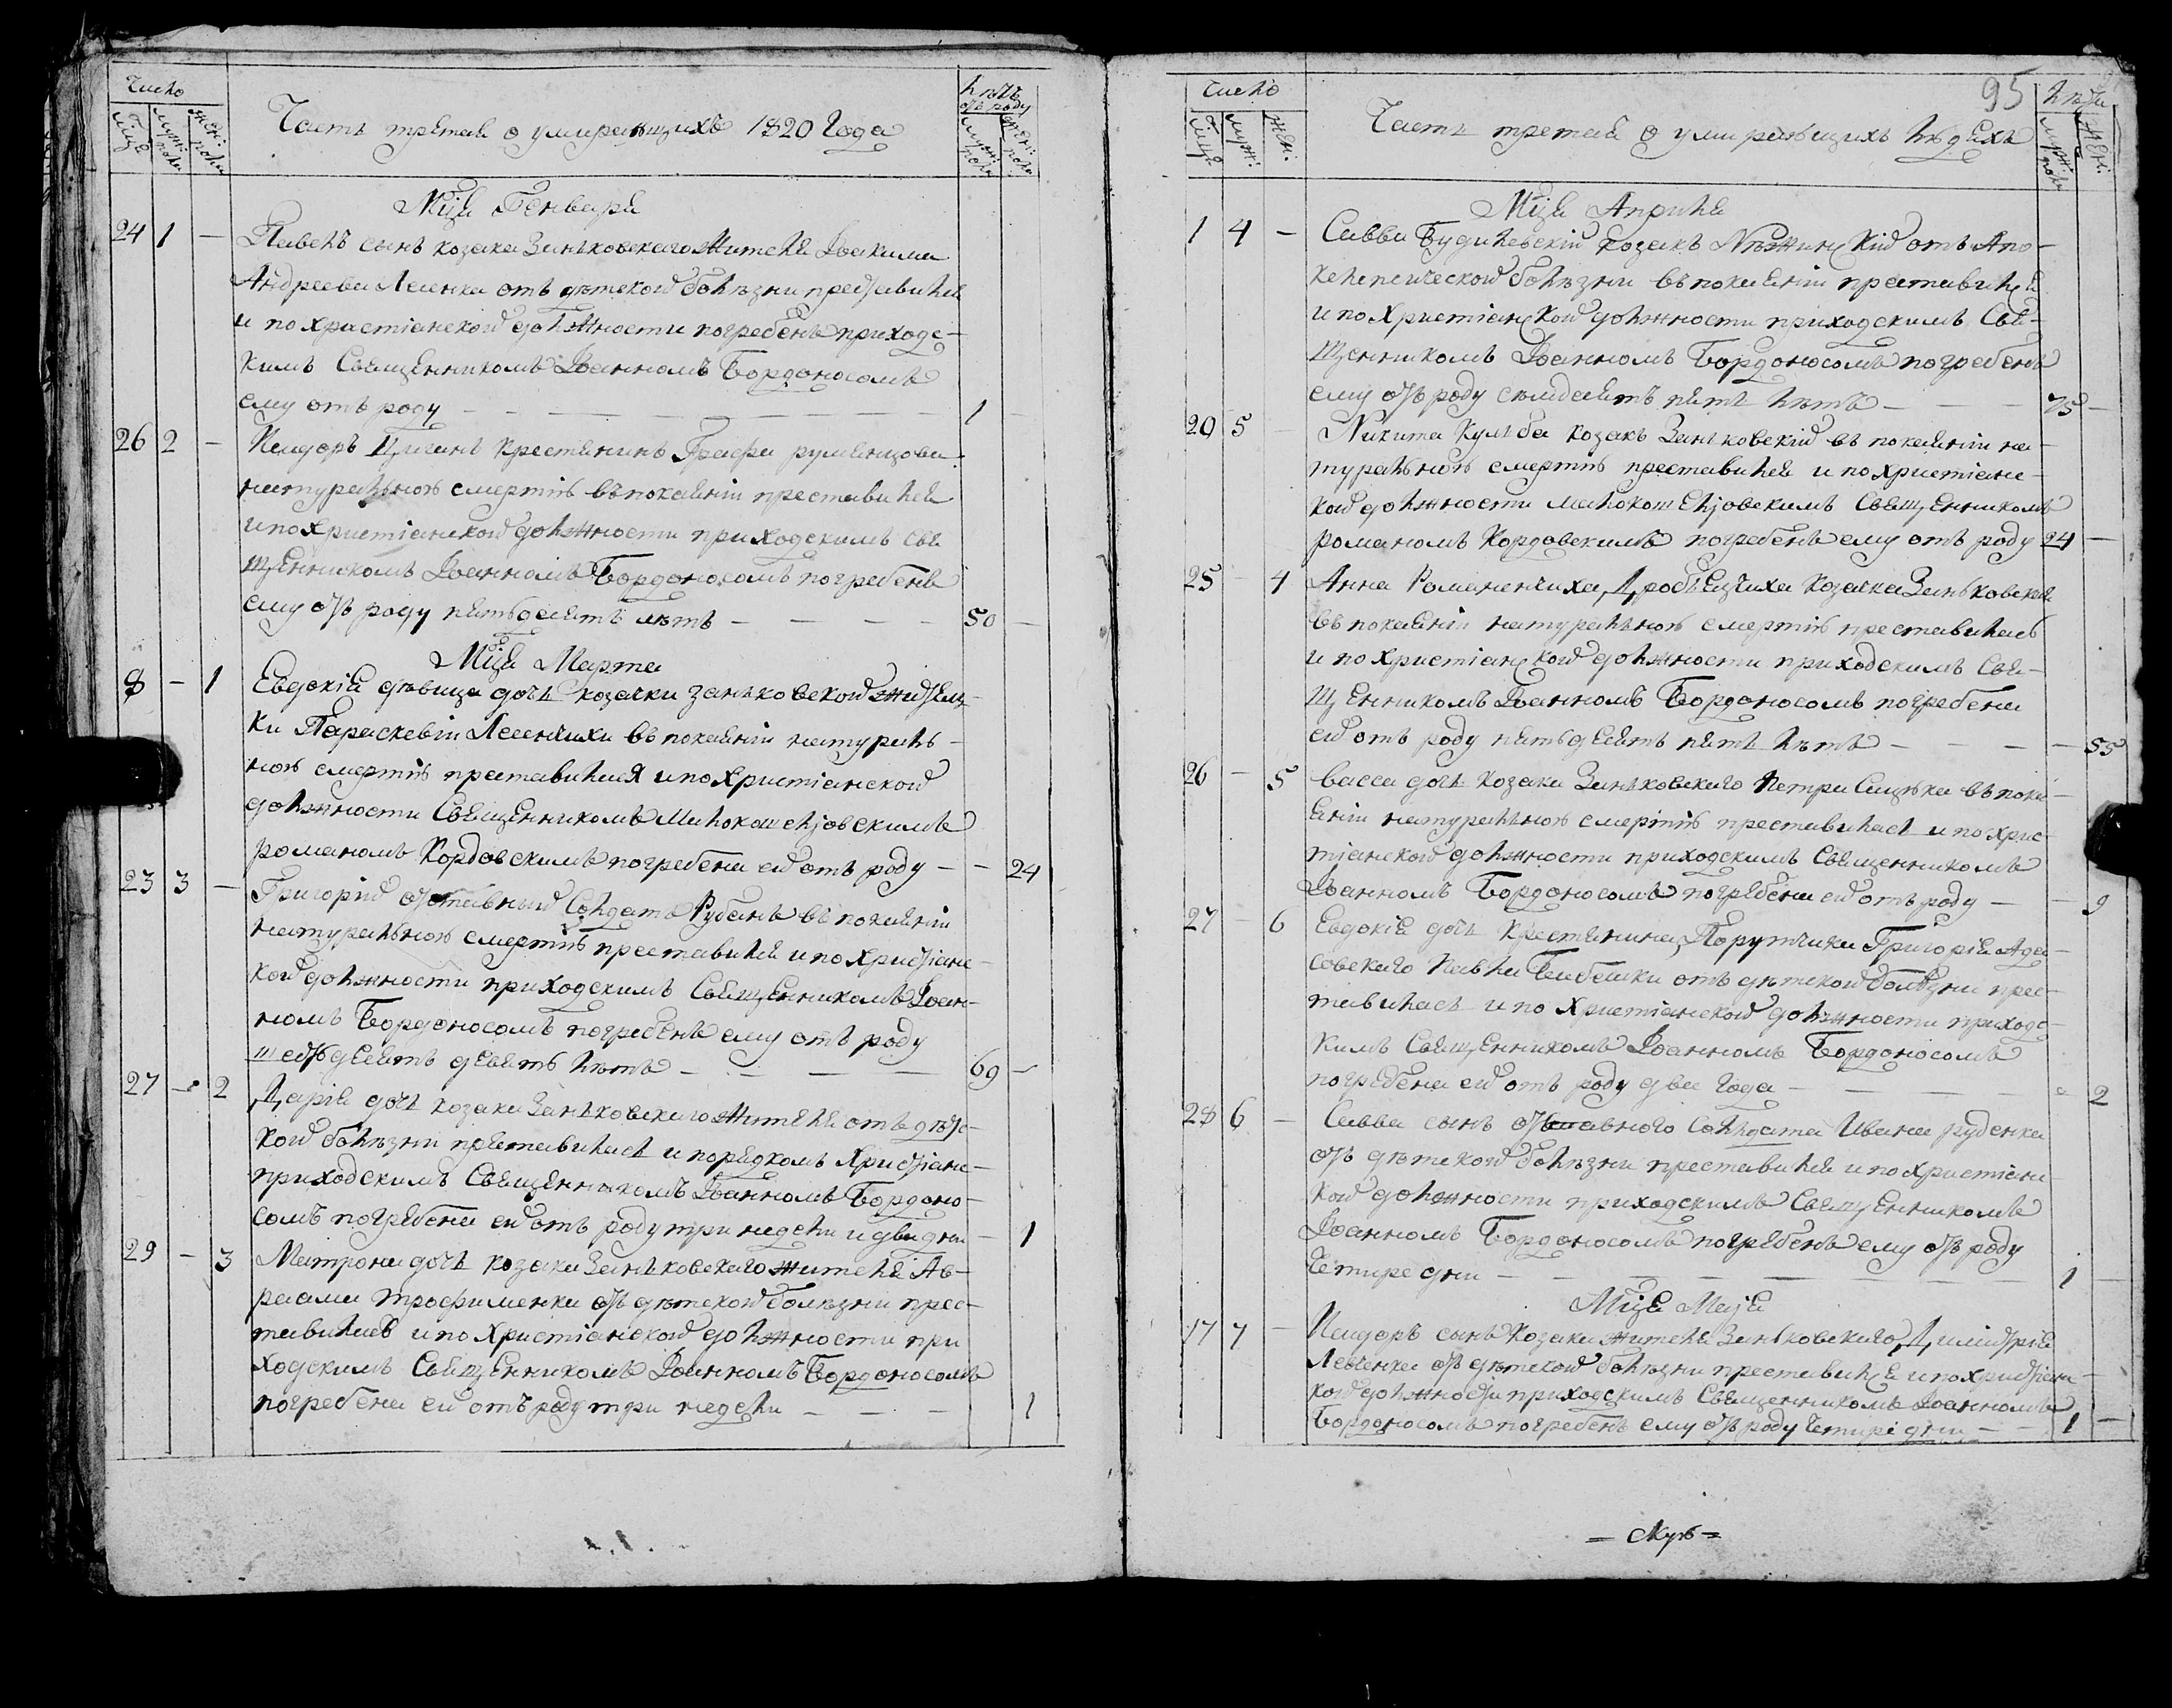 Число
Часть третая о умирающихъ 1820 Года
лѣтъ отъ роду
Мца муж: пола жен: пола
муж: пола жен: пола
Мца Генваря
24 1 — Павелъ сынъ козака Заньковского Жителя Иоакима
Андреева Лесенка отъ дѣтской болѣзни преставился
и по христіанской должности погребенъ приходс-
кимъ Священникомъ Иоанномъ Бордоносомъ
ему отъ роду — 1 —
26 2 — Исидоръ Циганъ крестянинъ Графа румянцова
натуральною смертію въ покаяніи преставился
и по христіанской должности приходскимъ свя
щенникомъ Иоанномъ Бордоносомъ погребенъ
ему отъ роду пятьдесятъ лѣтъ — 50 —
Мца Марта
8 — 1 Евдокія дѣвица дочь козачки заньковской жител-
ки Параскевіи Лесенчихи въ покаяніи натураль-
ною смертію преставилася и по христіанской
должности Священникомъ Малокошелювскимъ
романомъ Кордовскимъ погребена ей отъ роду — — 24
23 3 — Григорій отставный Солдатъ Рубанъ въ покаяніи
натуральною смертію преставился и по христіанс-
кой должности приходскимъ Священникомъ Иоан-
номъ Бордоносомъ погребенъ ему отъ роду
шестьдесятъ девять лѣтъ — 69 —
27 — 2 Дарія дочь козака Заньковского Жителя отъ дѣтс-
кой болѣзни преставилась и порядкомъ христіанс-
приходскимъ Священникомъ Иоанномъ Бордоно-
сомъ погребена ей отъ роду три недели и два дни — 1
29 — 3 Матрона дочь козака Заньковского жителя Ав-
раама трофименка отъ дѣтской болѣзни прес-
тавилась и по христіанской должности при
ходскимъ Священникомъ Иоанномъ Бордоносомъ
погребена ей отъ роду три недели — 1
95
Число
Часть третая о умирающихъ людехъ
лѣта
Мца муж: жен:
муж: пола жен:
Мца Априля
1 4 — Савва козакъ Нѣжинский отъ Апо-
келепсической болѣзни въ покаяніи преставился
и по христіанской должности приходскимъ Свя-
щенникомъ Иоанномъ Бордоносомъ погребенъ
ему отъ роду семдесятъ пять лѣтъ — 75 —
20 5 — Никита Кульба козакъ Заньковский въ покаяніи на-
туральною смертію преставился и по христіанс-
кой должности малокошелювскимъ Священникомъ
романомъ Кордовскимъ погребенъ ему отъ роду 24 —
25 — 4 Анна Романенчиха, Дробязчиха козачка Заньковская
въ покаяніи натуральною смертію преставилась
и по христіанской должности приходскимъ Свя-
щенникомъ Иоанномъ Бордоносомъ погребена
ей отъ роду пятьдесятъ пять лѣтъ — — 55
26 — 5 васса дочь козака Заньковского Петра въ пока-
яніи натуральною смертію преставилась и по хрис-
тіанской должности приходскимъ Священникомъ
Иоанномъ Бордоносомъ погребена ей отъ роду — — 9
27 — 6 Евдокія дочь крестянина Порутчика Григорія Ада-
совского Павла отъ дѣтской болѣзни прес-
тавилась и по христіанской должности приходс-
кимъ Священникомъ Иоанномъ Бордоносомъ
погребена ей отъ роду два года — 2
28 6 — Савва сынъ отставного Солдата Ивана руденка
отъ дѣтской болѣзни преставился и по христіанс
кой должности приходскимъ Священникомъ
Иоанномъ Бордоносомъ погребенъ ему отъ роду
четире дни — 1 —
Мца Маія
17 7 — Исидоръ сынъ Козака жителя Заньковского, Димитрія
Левченка отъ дѣтской болѣзни преставился и по христіанс-
кой должности приходскимъ Священникомъ Иоанномъ
Бордоносомъ погребенъ ему отъ роду четире дни — 1 —